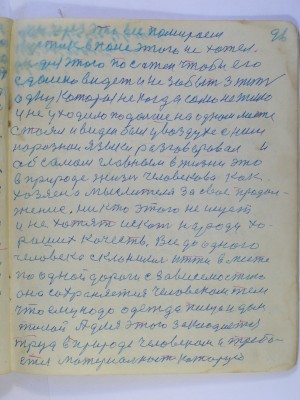 96
что все помираем
этого не хотел.
этого посажен чтобы его
сдалию видет и не забыт Этит
одну которой некогда само не жило
и не уходило подолше на одном месте
стоял и видел был у воздухе с ним
на разном языки разговаривал и
об самом главном в жизни это
в природе жизн человекова как
хозяена мыслителя за свое продол-
жение. никто этого не ищет
и не хотят искат природу хо-
роших качеств. Все до одного
человека склонилися итти вместе
по одной дороги с зависемостию
она сохраняется человеком тем
что ему надо одежда пища и дом
жилой А для этого заводится
труд в природе человеком и требу-
ется материальност которую